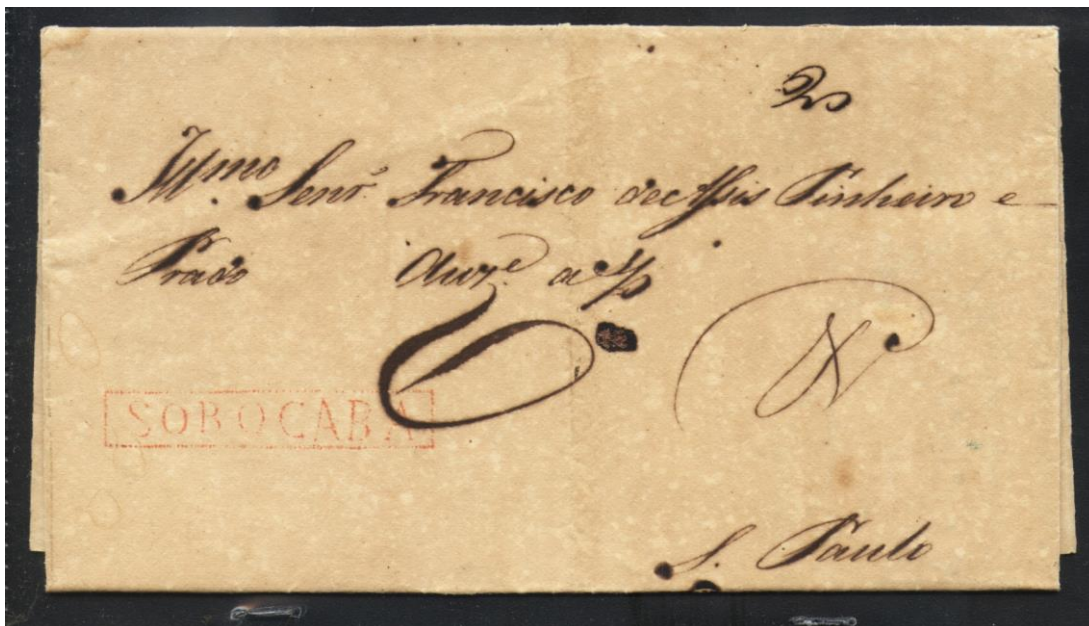 Ill.mo Senr. Francisco de Assis Pinheiro e
Prado
SOROCABA
S. Paulo